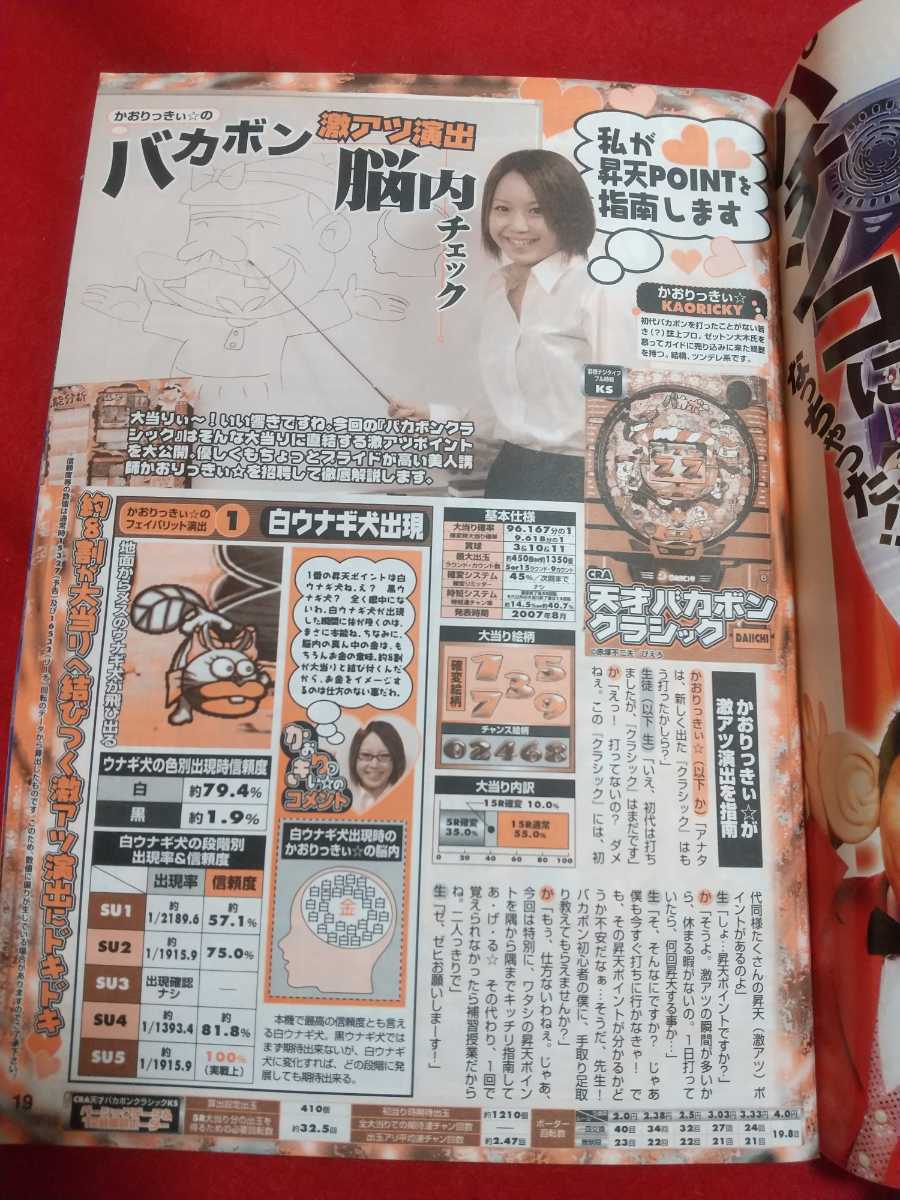 かおりっきぃ☆の
バカボン
激アツ演出
脳内
チェック
私が
昇天POINTを
指南します
かおりっきぃ☆
KAORICKY
初代バカボンを打ったことがない若
き(?)誌上プロ。ゼットン大木氏を
慕ってガイドに売り込みに来た経歴
を持つ。結構、ツンデレ系です。
大当りぃ～!いい響きですね。今回の『バカボンクラ
シック』はそんな大当りに直結する激アツポイント
を大公開。優しくもちょっとプライドが高い美人講
師かおりっきぃ☆を招聘して徹底解説します。
KS
CRA
天才バカボン
クラシック
DAIICHI
©赤塚不二夫 ぴえろ
約8割が大当りへ結びつく激アツ演出にドキドキ
かおりっきぃ☆の
フェイバリット演出
1
白ウナギ犬出現
地面からメスのウナギ犬が飛び出る
1番の昇天ポイントは白
ウナギ犬ねぇ? 黒ウ
ナギ犬? 全く眼中にな
いわ。白ウナギ犬が出現
した瞬間には体が疼くのは、
まさに本能ね。ちなみに、
脳内の真ん中の金は、も
ちろんお金の意味。約8割
が大当りと結び付くんだ
から、お金をイメージす
るのは仕方のない事だわ。
かおりっきぃ☆の
コメント
ウナギ犬の色別出現時信頼度
白 約79.4%
黒 約1.9%
白ウナギ犬の段階別
出現率&信頼度
出現率 信頼度
SU1 約1/2189.6 約57.1%
SU2 約1/1915.9 75.0%
SU3 出現確認ナシ ―
SU4 約1/1393.4 約81.8%
SU5 約1/1915.9 100%(実戦上)
白ウナギ犬出現時の
かおりっきぃ☆の脳内
金
本機で最高の信頼度とも言え
る白ウナギ犬。黒ウナギ犬では
まず期待出来ないが、白ウナギ
犬に変化すれば、どの段階に発
展しても期待出来る。
基本仕様
大当り確率 96.167分の1
確変時大当り確率 9.618分の1
賞球 3&10&11
最大出玉 約450個or約1350個
ラウンド・カウント数 5or15ラウンド・9カウント
確変システム 45%/次回まで
確変リミッター ナシ
時短システム
約14.5%or約40.7%
発表時期 2007年8月
大当り絵柄
確変絵柄
1 3 5 7 9
チャンス絵柄
0 2 4 6 8
大当り内訳
15R確変 10.0%
5R確変 35.0%
15R通常 55.0%
0 20 40 60 80 100
かおりっきぃ☆が
激アツ演出を指南
かおりっきぃ☆(以下 か)「アナタ
は、新しく出た『クラシック』はも
う打ったかしら?」
生徒(以下 生)「いえ、初代は打ち
ましたが、『クラシック』はまだです」
か「えっ! 打ってないの? ダメ
ねぇ。この『クラシック』には、初
代同様たくさんの昇天(激アツ)ポ
イントがあるのよ」
生「しょ…昇天ポイントですか?」
か「そうよ。激アツの瞬間が多いか
ら、休まる暇がないの。1日打って
いたら、何回昇天する事か…」
生「そ、そんなにですか? じゃあ
僕も今すぐ打ちに行かなきゃ! で
も、その昇天ポイントが分かるかど
うか不安だなぁ…そうだ、先生!
バカボン初心者の僕に、手取り足取
り教えてもらえませんか?」
か「もぅ、仕方ないわねぇ。じゃあ、
今回は特別に、ワタシの昇天ポイン
トを隅から隅までキッチリ指南して
あ・げ・る☆ その代わり、1回で
覚えられなかったら補習授業だから
ね。二人っきりで」
生「ぜ、ゼヒお願いしまーす!」
19
CRA天才バカボンクラシックKS
算出設定出玉 410個
5R大当り分の出玉を
得るための必要回転数 約32.5回
初当り時期待出玉 約1210個
全大当りでの期待連チャン回数 ―
出玉アリ平均連チャン回数 約2.47回
ボーダー
回転数
2.0円 2.38円 2.5円 3.03円 3.33円 4.0円
40回 34回 32回 27回 24回 19.8回
23回 22回 22回 21回 21回
なっちゃった!!